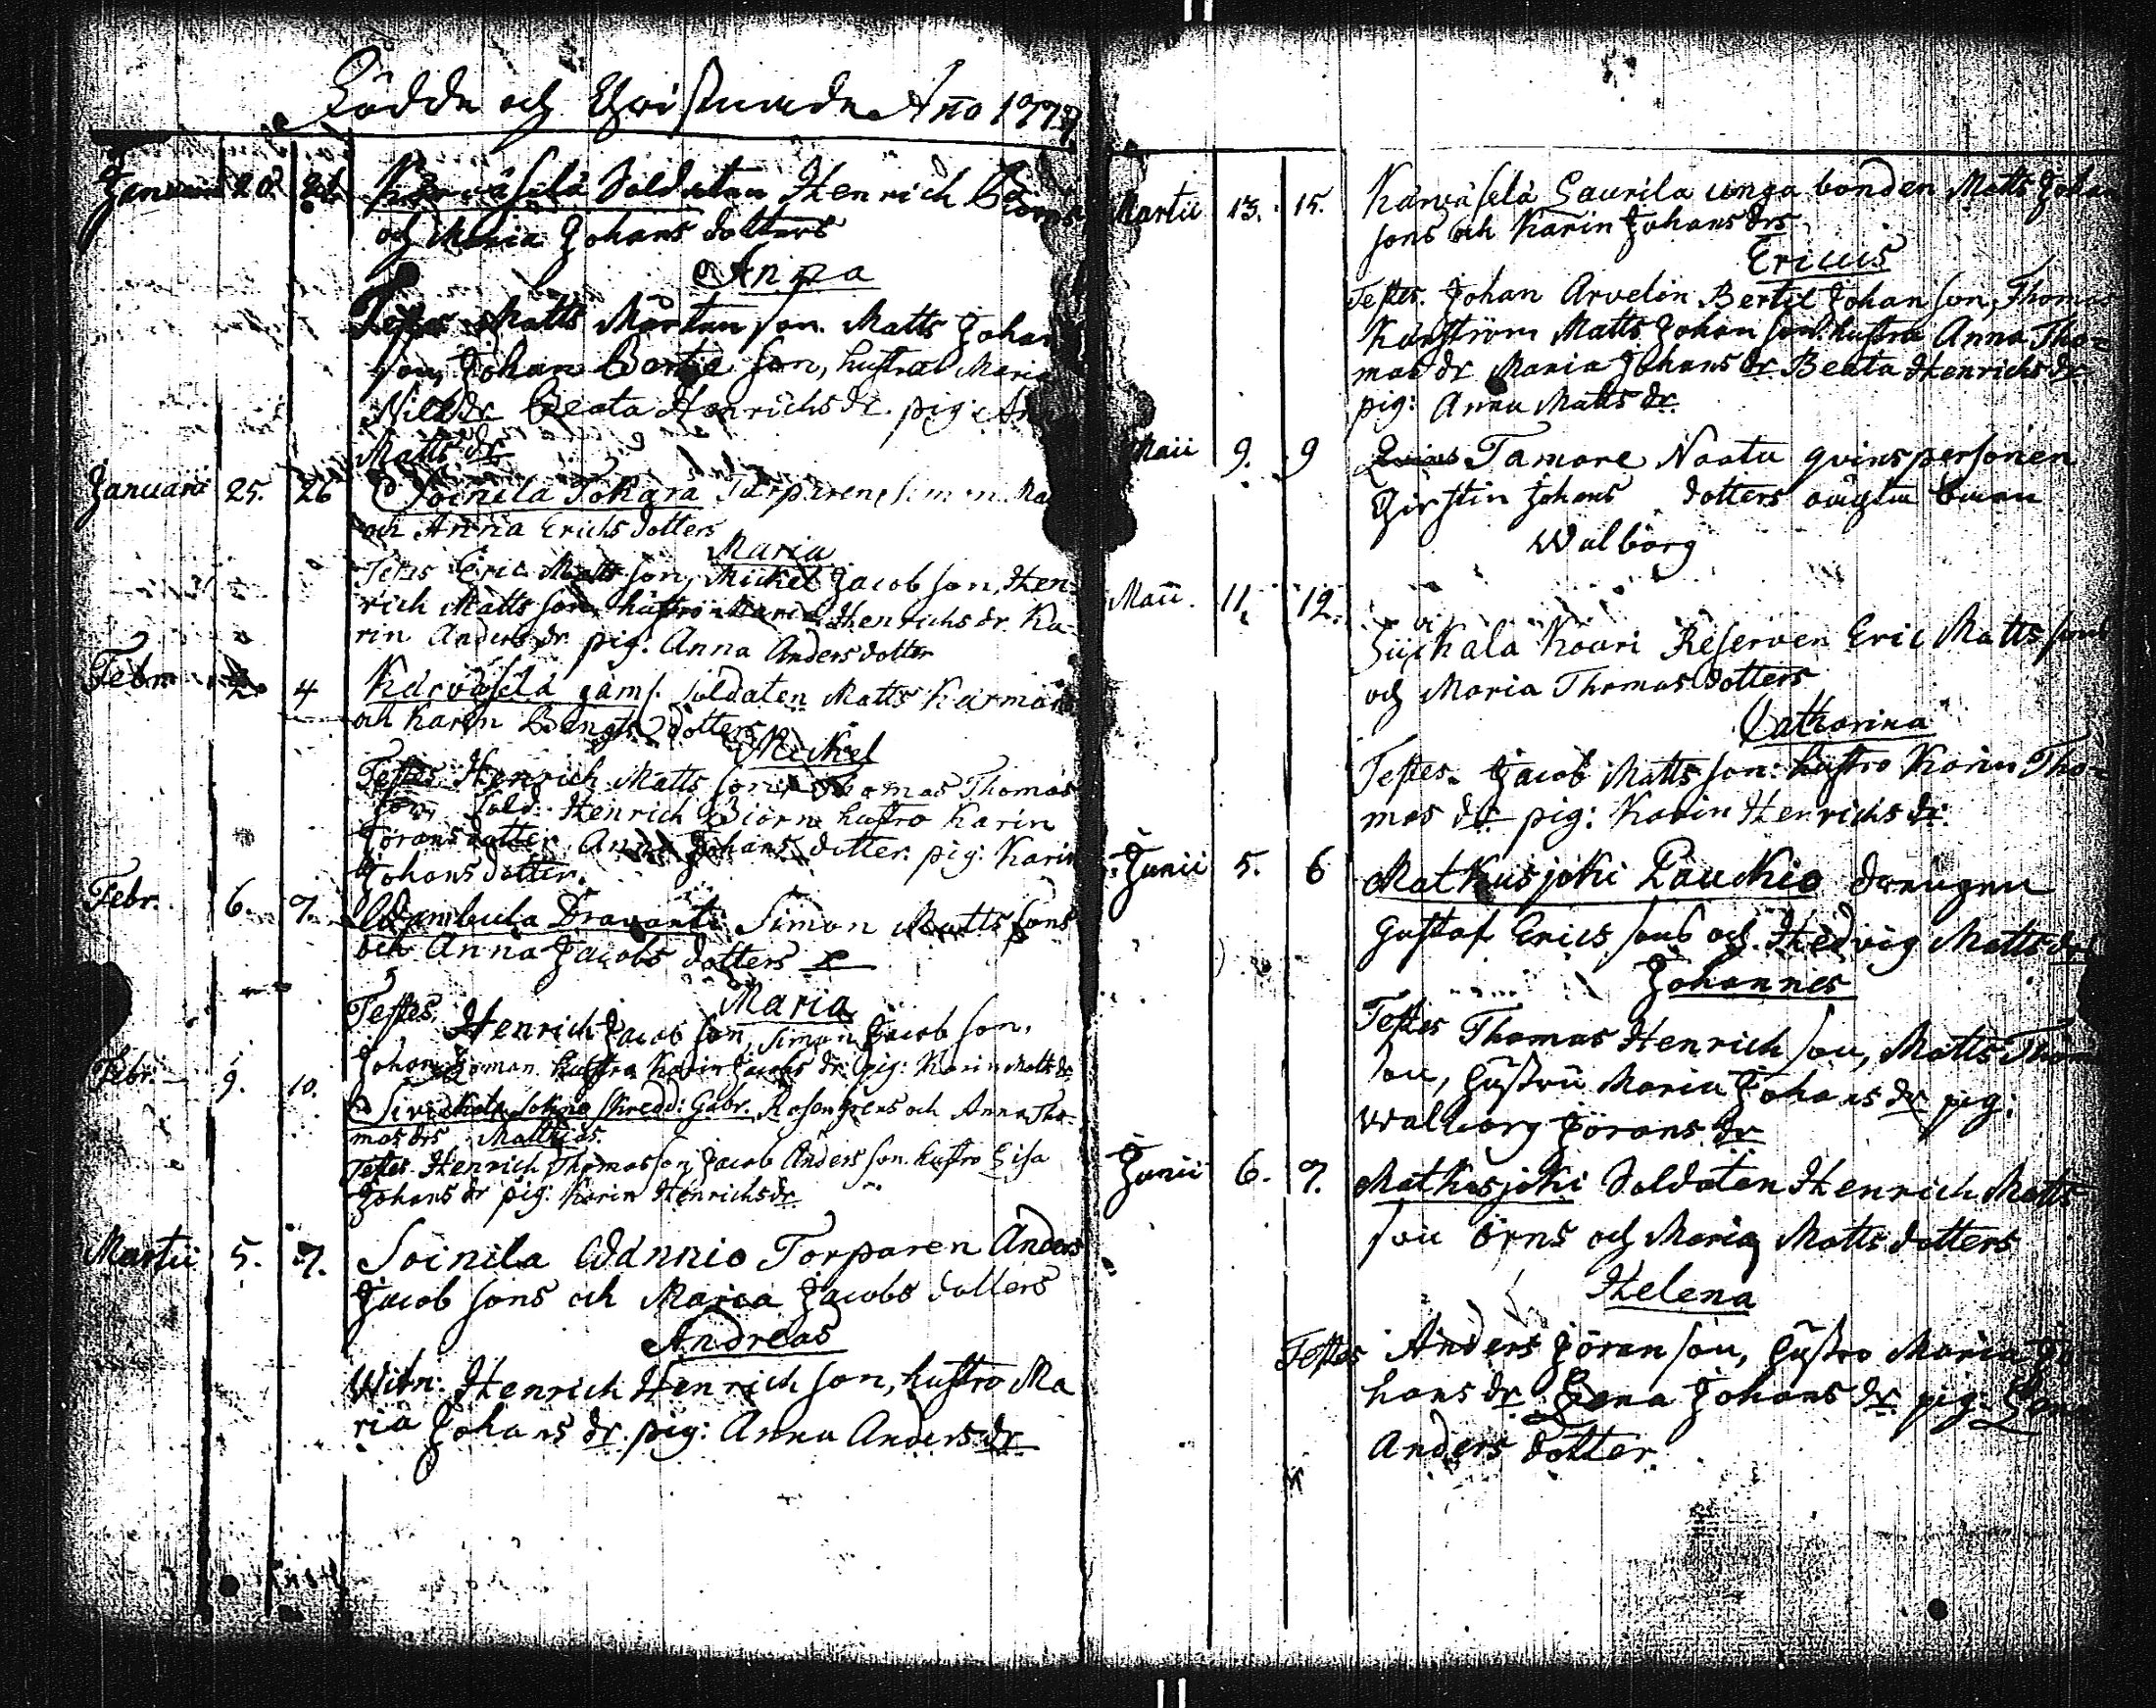 Födde och Christnade Anno 177
Januarii 20. Kärväselä Soldaten Henrich Biörns
och Maria Johans dotters
Anna
Testes Matts Mårten son. Matts Johan
son, Johan Bertil son, hustro Maria
Nils dr Beata Henrichs dr. pig: An
Matts dr
Januarii 25. 26 Soinila Tokara Torparen Simon Ma
och Anna Erichs dotters
Maria
Testes Eric Matts son, Mickel Jacob son, Hen-
rich Matts son, hustro Maria Henrichs dr. Ka-
rin Anders dr. pig: Anna Anders dotter
Febr. 2. 4 Kärväselä gaml. soldaten Matts Kärmäs
och Karin Bengts dotters
Mickel
Testes Henrich Matts son, Thomas Thomas
son, Sold: Henrich Biörn hustro Karin
Jörans dotter Anna Johans dotter. pig: Karin
Johans dotter.
Febr. 6. 7. Simon Matts sons
och Anna Jacobs dotters
Maria
Testes. Henrich Jacob son, Simon Jacob son,
Johan hustro Karin Jacobs dr. pig: Karin Matts dr
Febr. 9. 10. skredd: Gabr. Rosengrens och Anna Tho-
mas drs Matthias.
Testes Henrich Thomasson, Jacob Anders son. hustro Lisa
Johans dr pig: Karin Henrichs dr
Martii 5. 7. Soinila Wännio Torparen Anders
Jacob sons och Maria Jacobs dotters
Andreas
Witn: Henrich Henrich son, hustro Ma
ria Johans dr. pig: Anna Anders dr
Martii 13. 15. Kärväselä Laurila unga bonden Matts Johan
sons och Karin Johans drs
Ericus
Testes. Johan Arvelin Bertil Johan son, Thomas
Matts Johan son. hustro Anna Tho-
mas dr Maria Johans dr Beata Henrichs dr
pig: Anna Matts dr.
Maii 9. 9 Tamare Naatu qvinspersonen
Kirstin Johans dotters oägta barn
Walborg
Maii. 11. 12. Siivikala Kouri Reserven Eric Matts sons
och Maria Thomas dotters
Catharina
Testes. Jacob Matts son: hustro Karin Tho-
mas dr. pig: Karin Henrichs dr.
Junii 5. 6 Matkusjoki Laukio drengen
Gustaf Erics sons och Hedvig Matts dr
Johannes
Testes Thomas Henrich son, Matts Thom
son, hustru Maria Johans dr pig:
Walborg Jörans dr
Junii 6. 7. Matkusjoki Soldaten Henrich Matts
son Örns och Maria Matts dotters
Helena
Testes Anders Jöran son, hustro Maria Jo
hans dr Lena Johans dr pig: Lena
Anders dotter.